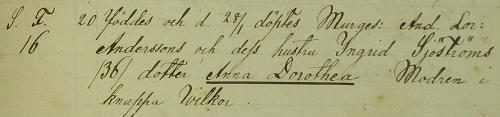 S. F. 20 Föddes och d 28/1 döptes Murges: And. Lor:
16 Anderssons och dess hustru Ingrid Sjöströms
/36/ dotter Anna Dorothea Modren i
knappa Wilkor.